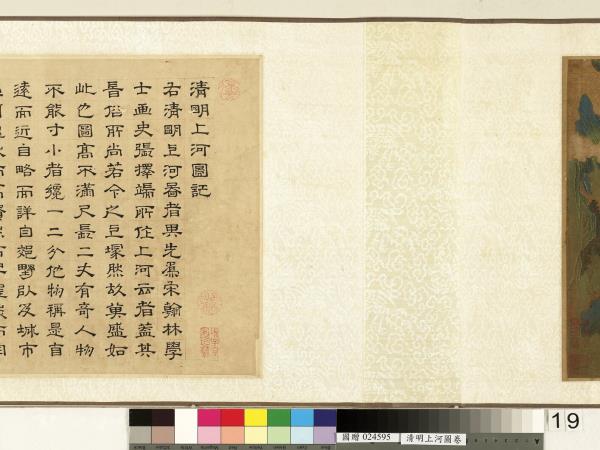 清明上河圖記
右清明上河啚者先爲宋翰林學
士畫史張擇端所作上河云者蓋其
旹俗所尚若今之上塚然故其盛如
此也圖高不滿尺長二丈有奇人物
不能寸小者纔一二分他物稱是自
遠而近自略而詳自郊野以及城市
19
國贈 024595
清明上河圖卷